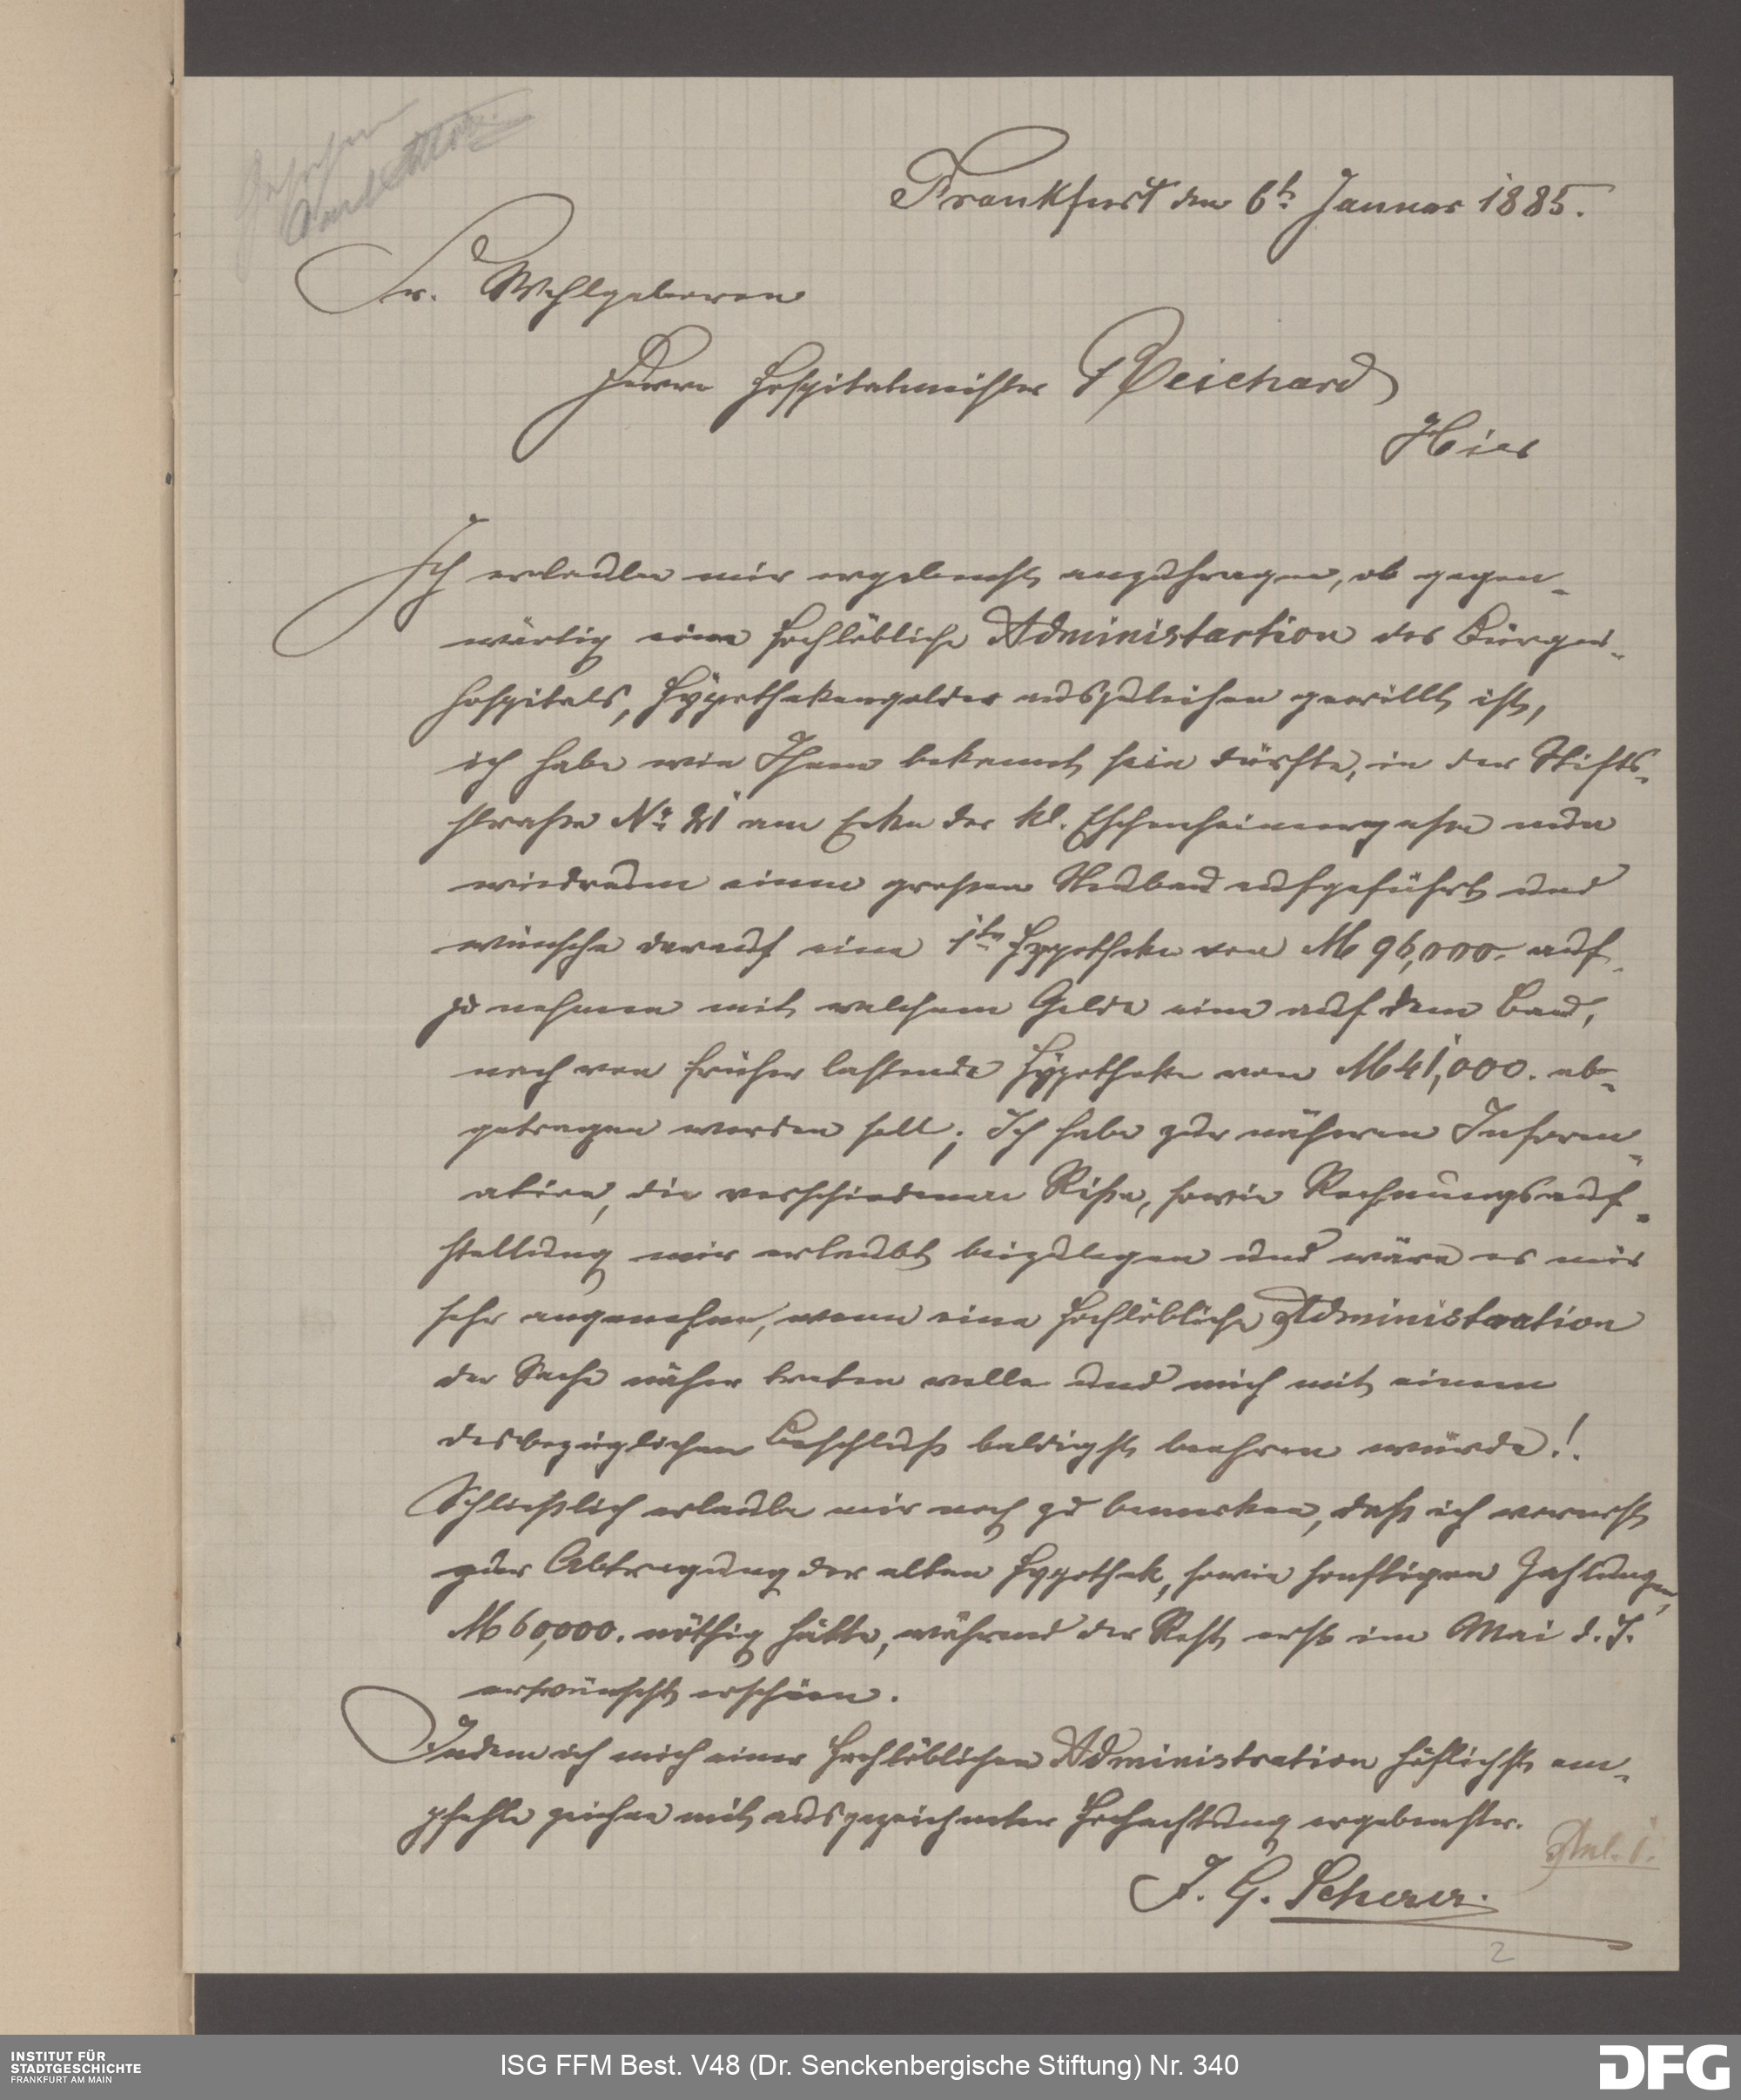 Gesehen
Frankfurt den 6t. Januar 1885.
Sr. Wohlgeboren
Herrn Hospitalmeister Reichard
Hier
Ich erlaube mir ergebenst anzufragen, ob gegen-
wärtig eine hochlöbliche Administartion des Bürger-
hospitals, Hypothekengelder auszuleihen gewillt ist,
ich habe wie Ihnen bekannt sein dürfte, in der Stifts-
straße No. 21 am Ecke der kl. Eschenheimergasse nun
wiedraum einen großen Neubau aufgeführt und
wünsche darauf eine 1te Hypotheke von M 96,000. auf-
zu nehmen mit welchem Gelde eine auf dem Bau,
noch von früher lastende Hypotheke von M 41,000. ab-
getragen werden soll; Ich habe zur näheren Inform-
ation, die verschiedenen Riße, sowie Rechnungsauf-
stellung mir erlaubt beizulegen und wäre es mir
sehr angenehm, wenn eine hochlöbliche Administration
der Sache näher treten wolle und mich mit einem
desbezüglichen Beschluß baldigst beehren würde!.
Schließlich erlaube mir noch zu bemerken, daß ich vorerst
zur Abtragung der alten Hypothek, sowie sonstigen Zahlungen,
M 60,000. nöthig hätte, während der Rest erst im Mai d. J.
erwünscht erschien.
Indem ich mich einer hochlöblichen Administration höflichst em-
pfehle zeichne mit ausgezeichneter Hochachtung ergebenster.
Anl. 1.
J. G. Scherer.
2
INSTITUT FÜR
STADTGESCHICHTE
FRANKFURT AM MAIN
ISG FFM Best. V48 (Dr. Senckenbergische Stiftung) Nr. 340
DFG